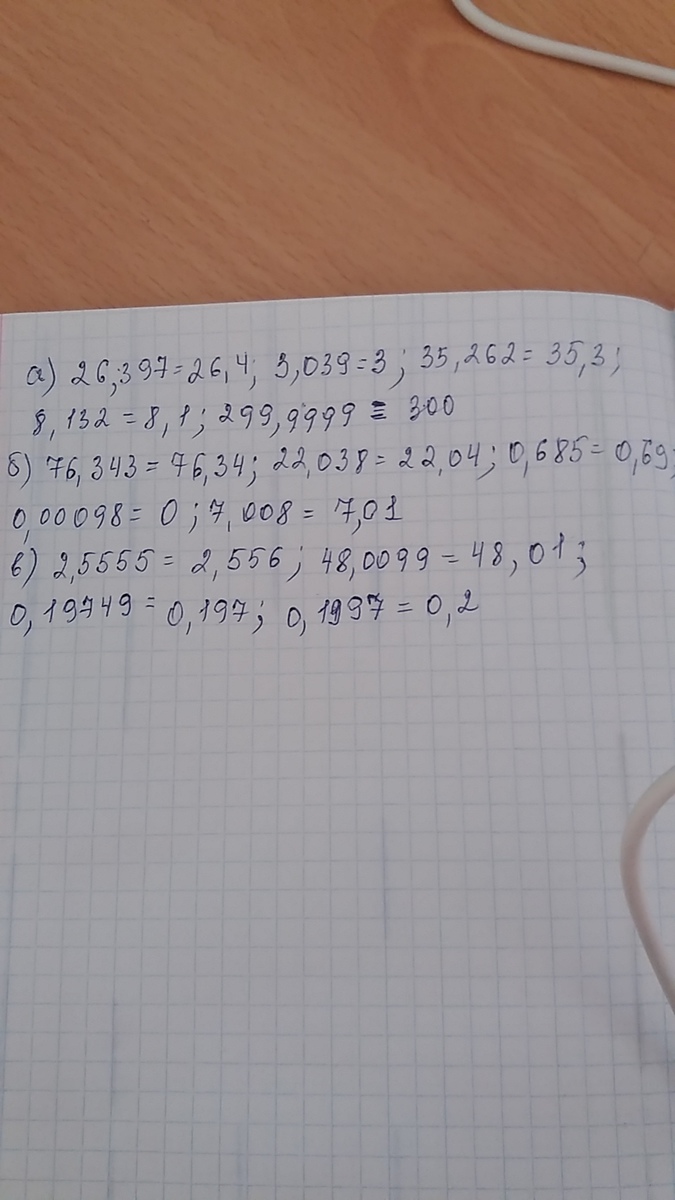 а) 26,397=26,4; 3,039=3; 35,262=35,3;
8,132=8,1; 299,9999 = 300
б) 76,343=76,34; 22,038=22,04; 0,685=0,69;
0,00098=0; 7,008=7,01
в) 2,5555=2,556; 48,0099=48,01;
0,19749=0,197; 0,1997=0,2